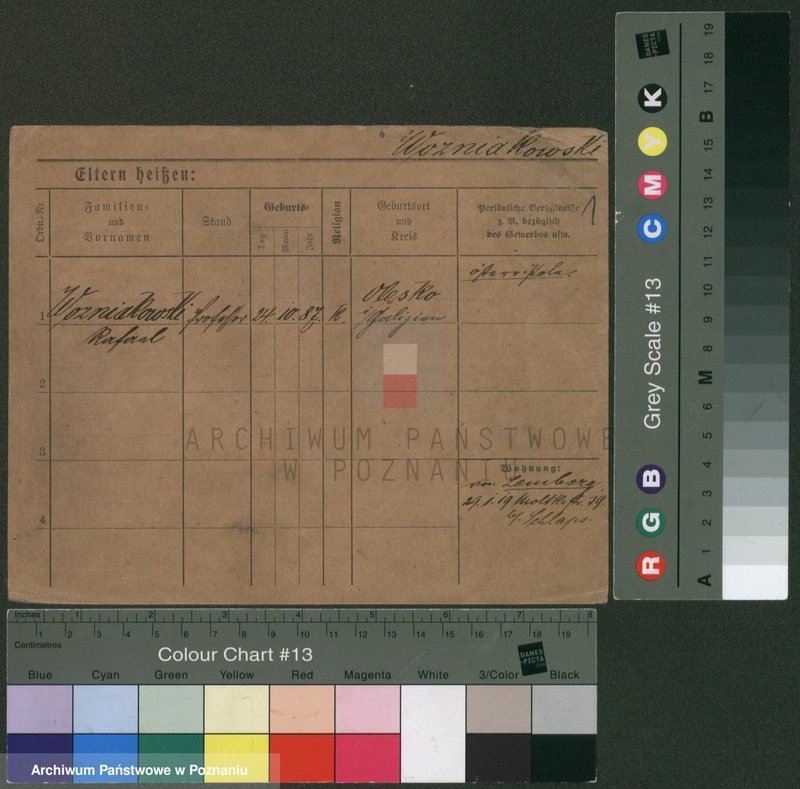 Wozniakowski
Eltern heißen:
Ordn.-Nr
Familien-
und
Vornamen
Stand
Geburts-
Tag
Monat
Jahr
Religion
Geburtsort
und
Kreis
Persönliche Verhältnisse
z. B. bezüglich
des Gewerbes usw.
österr. Pole.
1 Wozniakowski Professor 24. 10. 87. K. Olesko
Rafael Galizien
2
3
4
Wohnung:
von Lemberg
29. 1. 19 Moltkestr. 39.
b/. Schlaps.
ARCHIWUM PAŃSTWOWE
W POZNANIU
Inches 1 2 3 4 5 6 7 8
1 2 3 4 5 6 7 8 9 10 11 12 13 14 15 16 17 18 19
Centimetres
Colour Chart #13
DANES
-PICTA
.COM
Blue Cyan Green Yellow Red Magenta White 3/Color Black
Archiwum Państwowe w Poznaniu
Grey Scale #13
DANES
-PICTA
.COM
R G B C M Y K
A 1 2 3 4 5 6 M 8 9 10 11 12 13 14 15 B 17 18 19